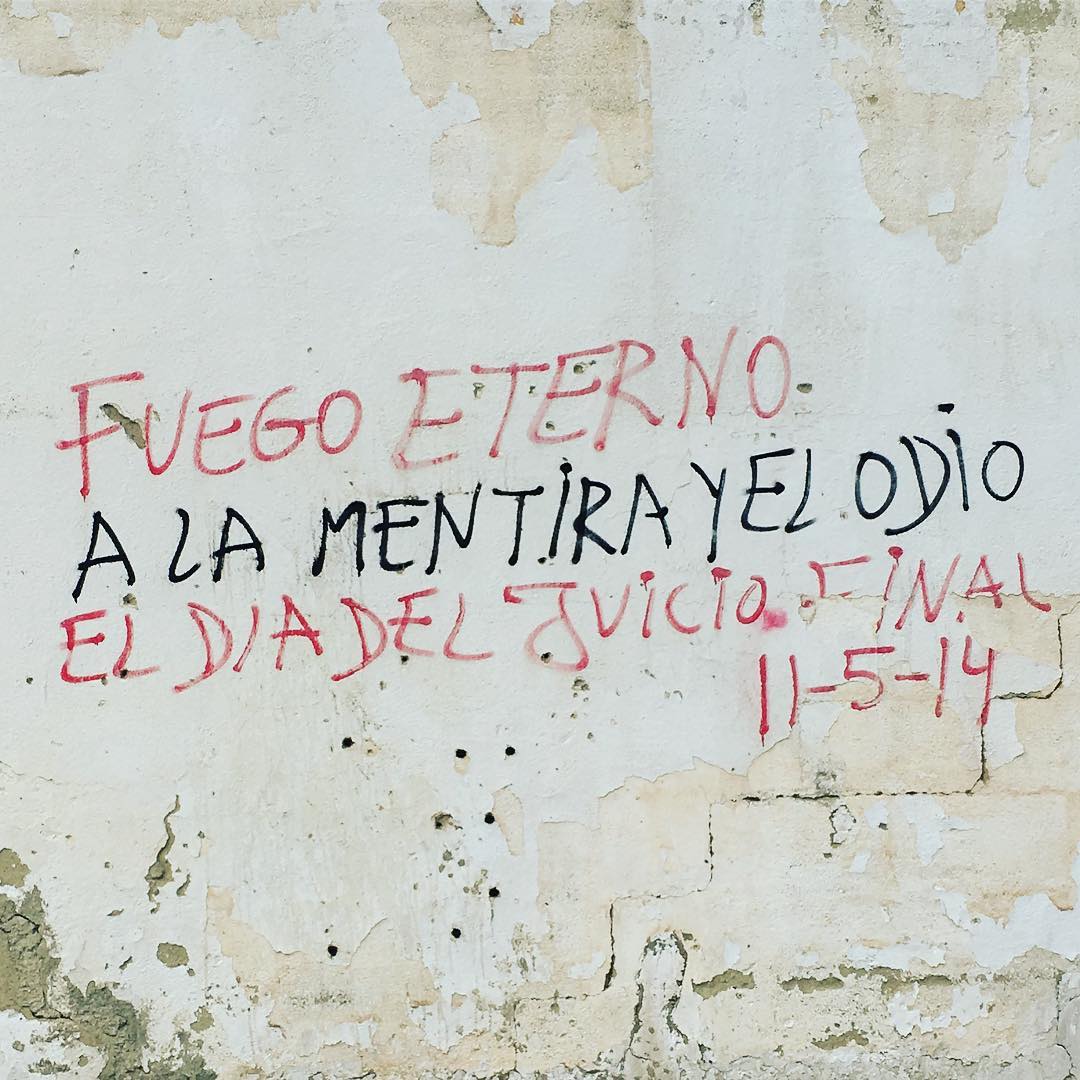 FUEGO ETERNO
A LA MENTIRA Y EL ODIO
EL DIA DEL JUICIO FINAL
11-5-14